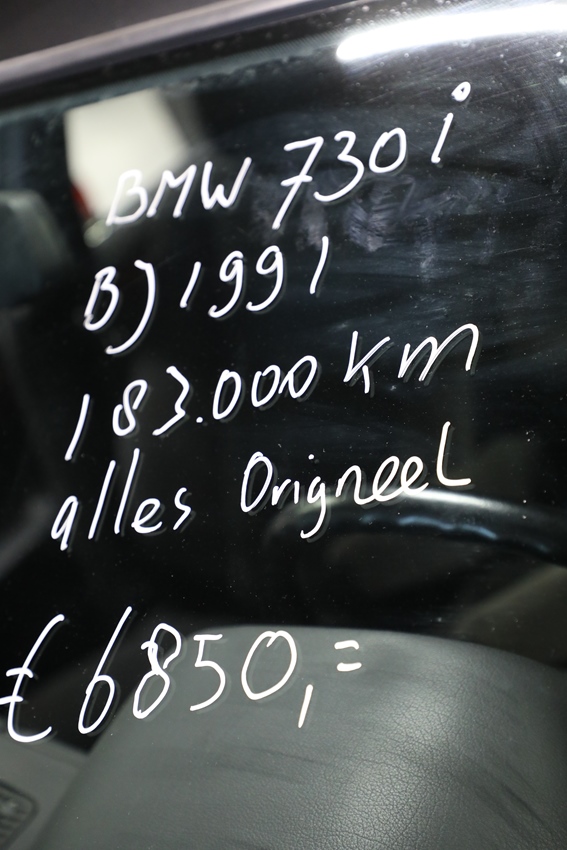 BMW 730i
BJ 1991
183.000 km
alles Origneel
€ 6850,=